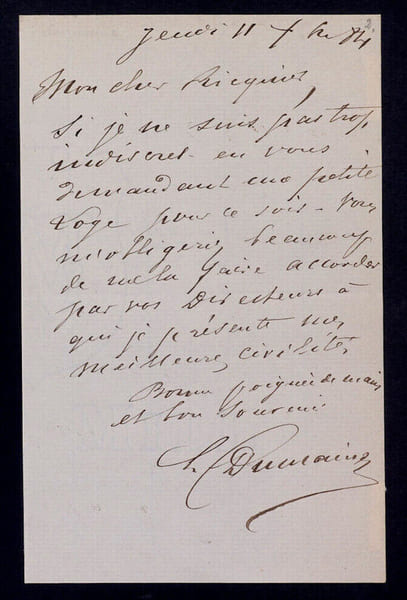 2.
Jeudi 11 Xbre 84
Mon cher Ricquier,
Si je ne suis pas trop
indiscret en vous
demandant une petite
Loge pour ce soir - vous
m'obligeriez beaucoup
de me la faire accorder
par vos Directeurs à
qui je présente mes
meilleures civilités
Bonne poignée de main
et bon souvenir
Dumaine